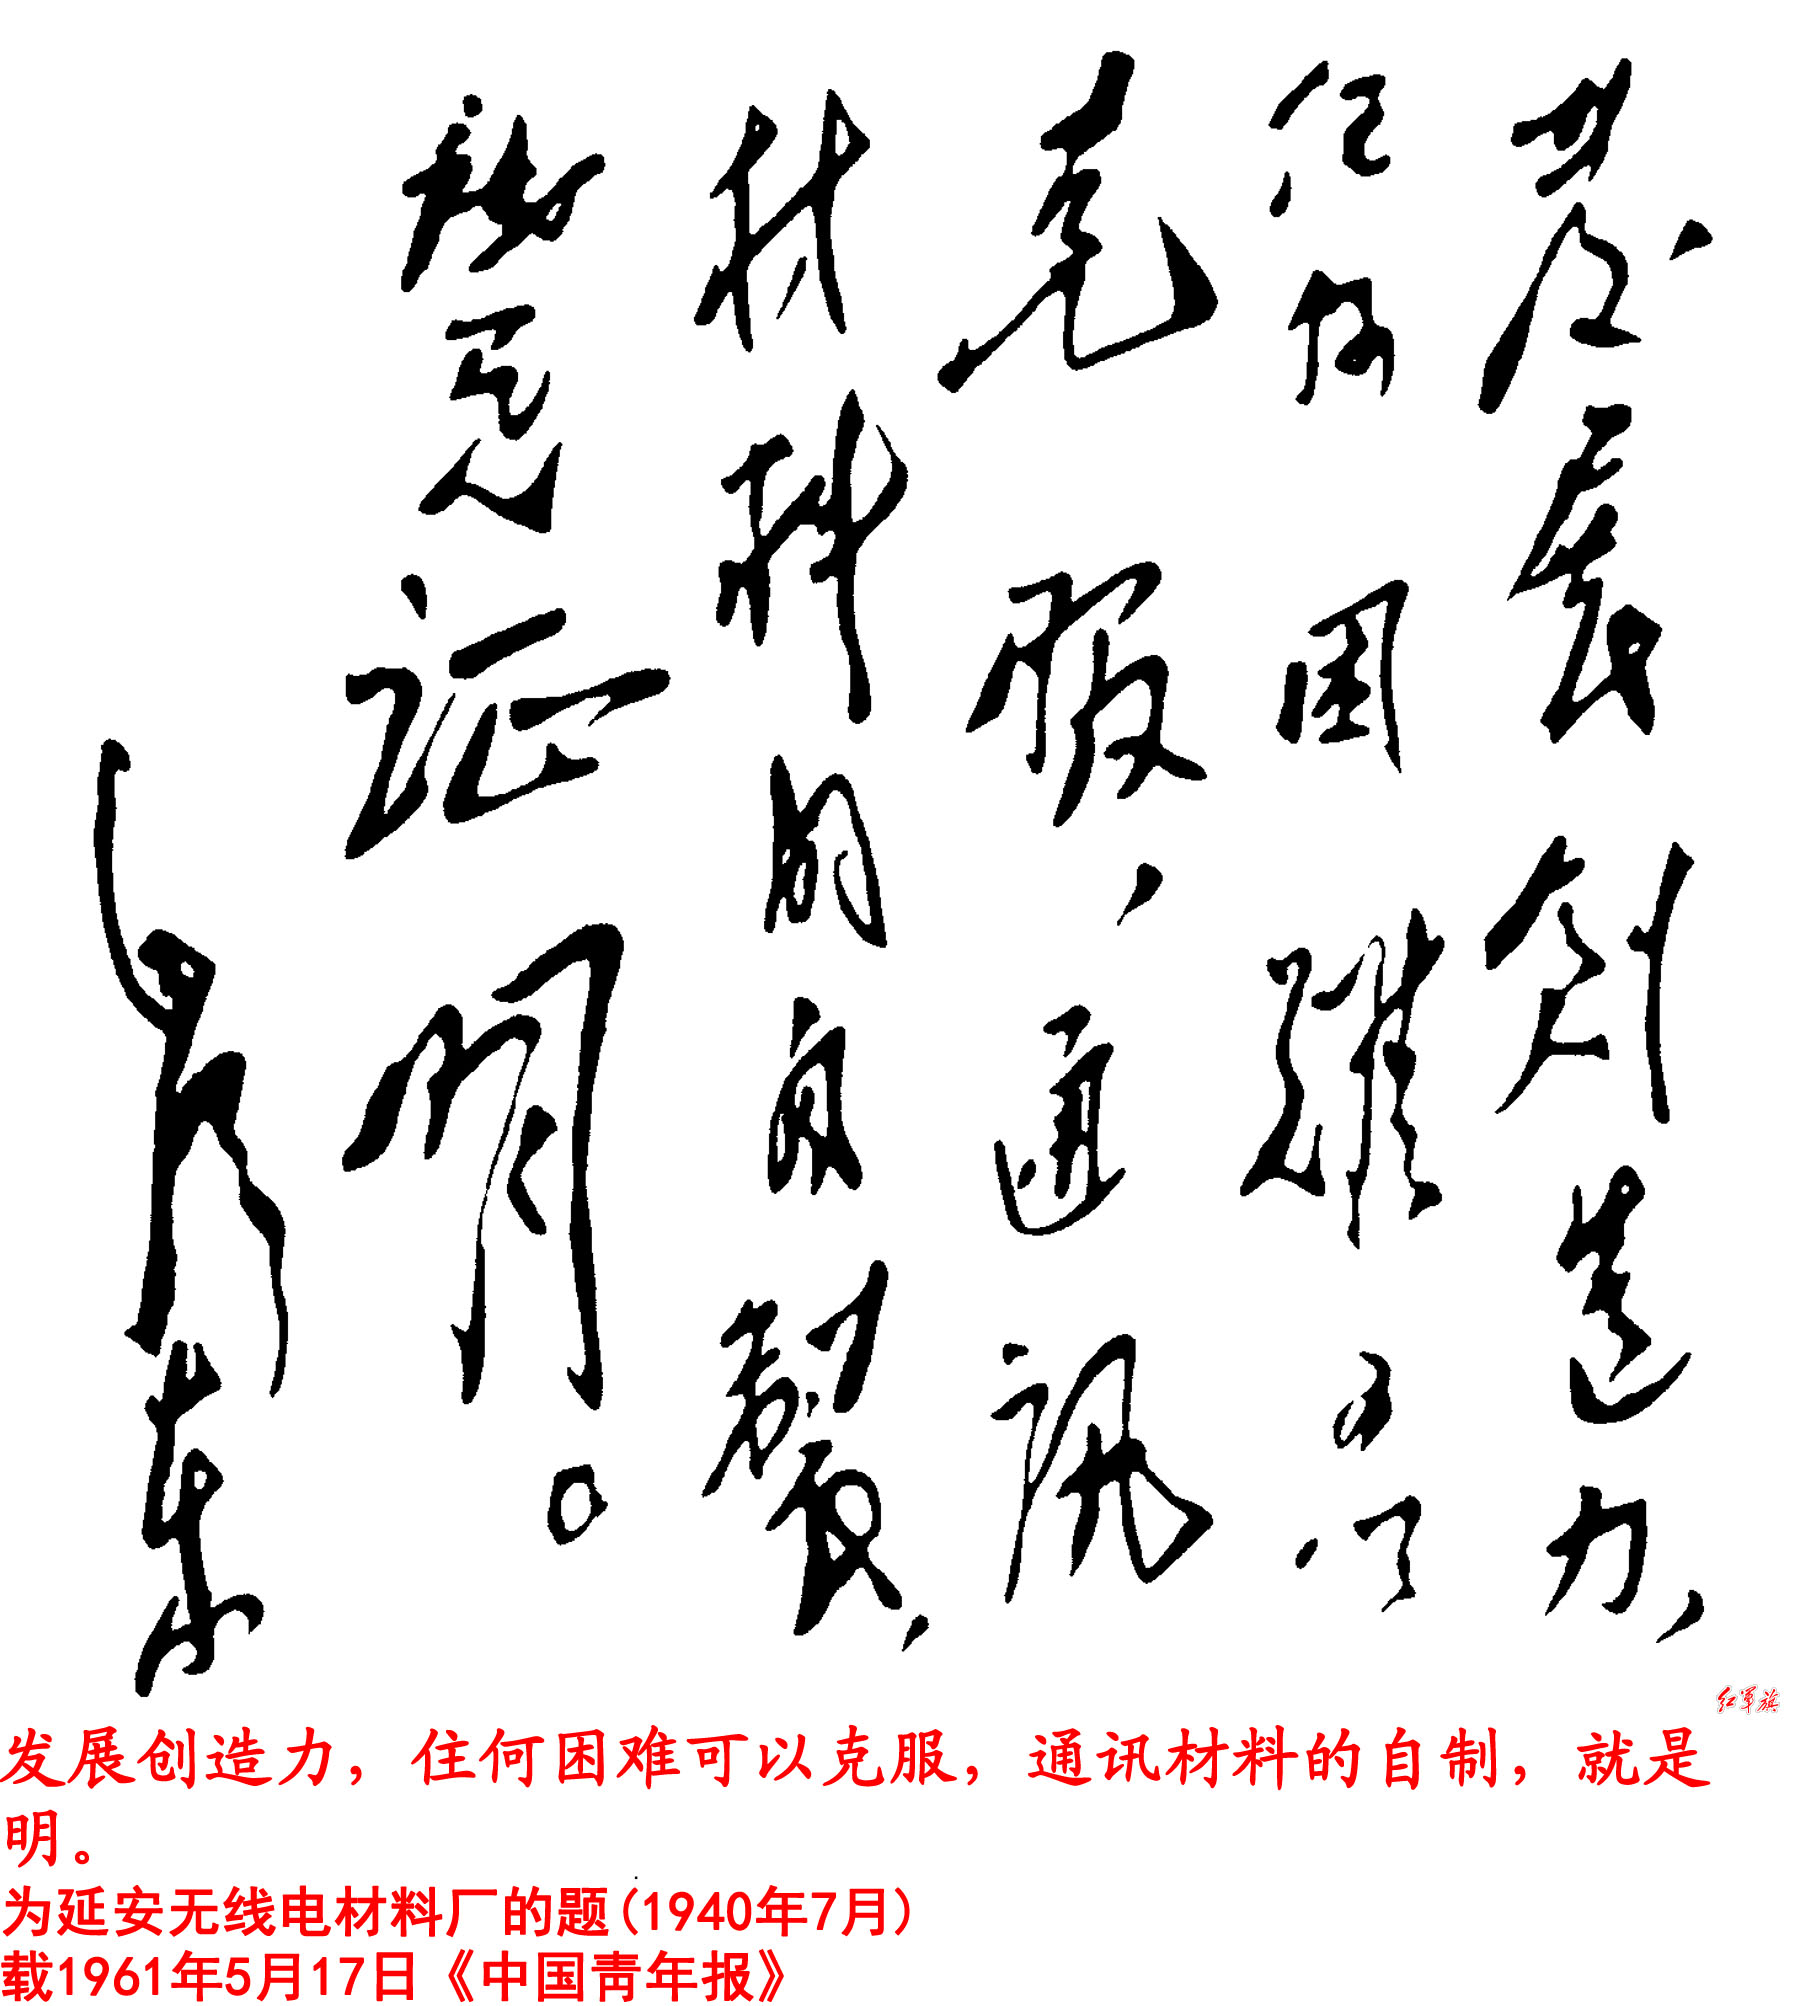 發展創造力，
任何困難可以
克服，通訊
材料的自製，
就是证明。
毛泽东
红军旗
发展创造力，住何困难可以克服，通讯材料的自制，就是
明。
为延安无线电材料厂的题(1940年7月)
载1961年5月17日《中国青年报》